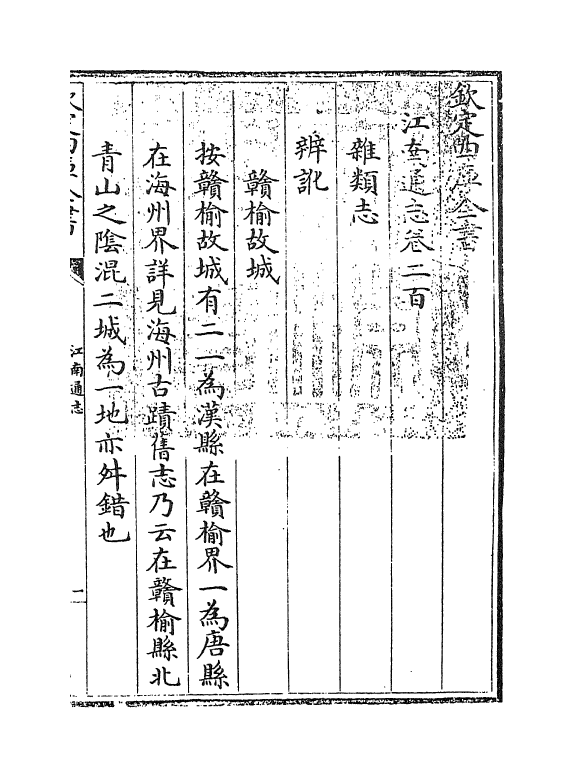 欽定四庫全書
江南通志卷二百
雜類志
辨訛
贛榆故城
按贛榆故城有二一為漢縣在贛榆界一為唐縣
在海州界詳見海州古蹟舊志乃云在贛榆縣北
青山之陰混二城為一地亦舛錯也
欽定四庫全書
江南通志